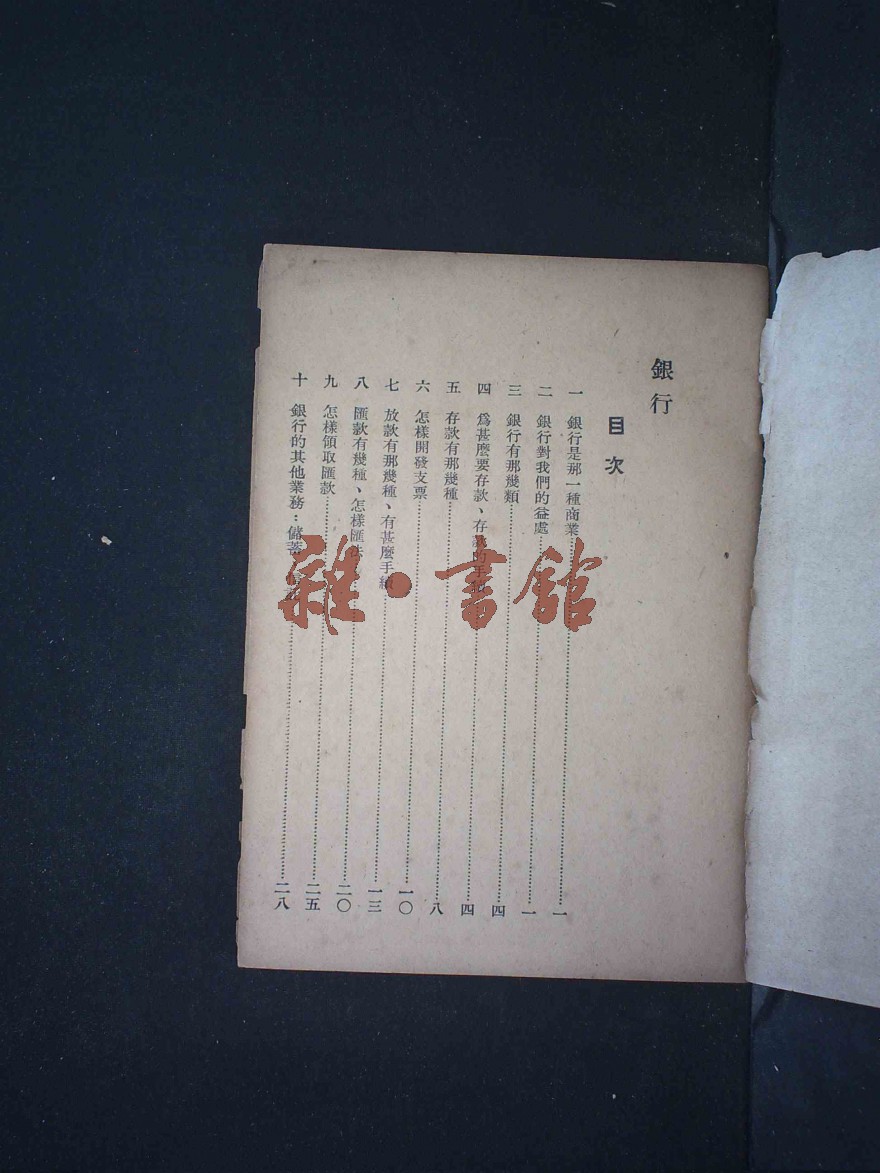 銀行
目次
一 銀行是那一種商業………一
二 銀行對我們的益處………一
三 銀行有那幾類………四
四 爲甚麼要存款、存款的手………四
五 存款有那幾種………八
六 怎樣開發支票………一〇
七 放款有那幾種、有甚麼手續………一三
八 匯款有幾種、怎樣匯法………二〇
九 怎樣領取匯款………二五
十 銀行的其他業務：儲蓄………二八
雜·書館